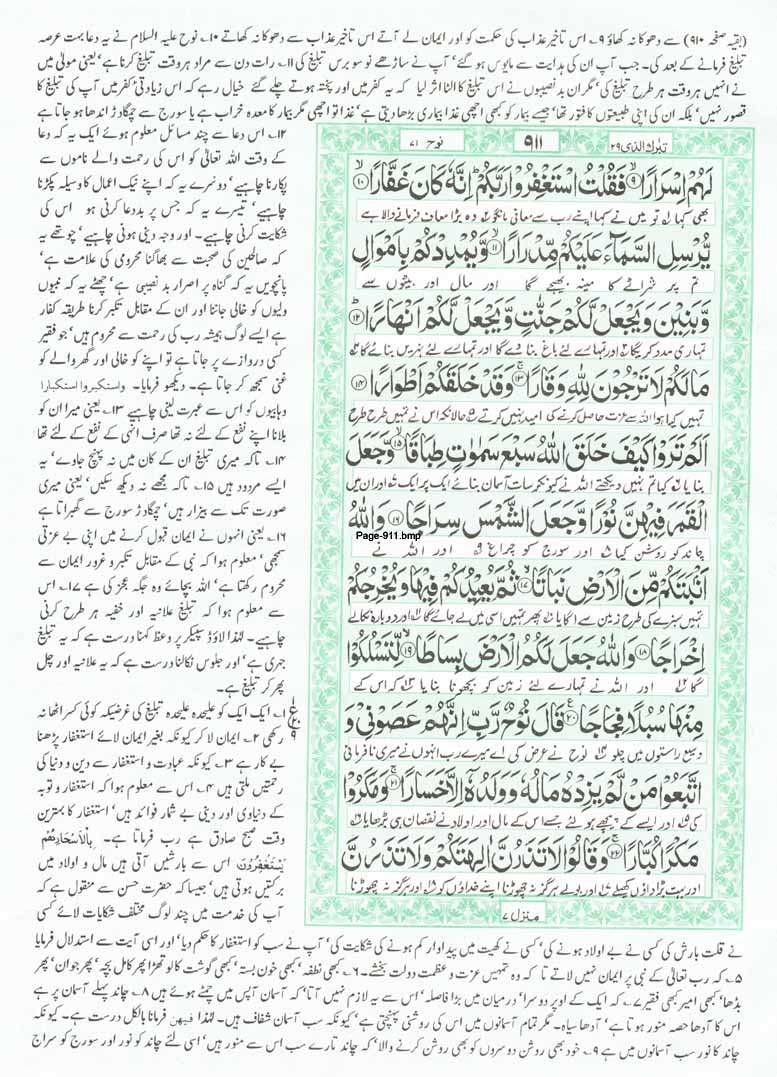 (بقیہ صفحہ ۹۱۰) سے دھوکا نہ کھاؤ ۹۔ اس تاخیر عذاب کی حکمت کو اور ایمان لے آتے اس تاخیر عذاب سے دھوکا نہ کھاتے ۱۰۔ نوح علیہ السلام نے یہ دعا بہت عرصہ
تبلیغ فرمانے کے بعد کی۔ جب آپ ان کی ہدایت سے مایوس ہو گئے' آپ نے ساڑھے نو سو برس تبلیغ کی ۱۱۔ رات دن سے مراد ہر وقت تبلیغ کرنا ہے' یعنی مولیٰ میں
نے انہیں ہر وقت ہر طرح تبلیغ کی' مگر ان بد نصیبوں نے اس تبلیغ کا الٹا اثر لیا کہ یہ کفر میں اور پختہ ہوتے چلے گئے خیال رہے کہ اس زیادتی کفر میں آپ کی تبلیغ کا
قصور نہیں' بلکہ ان کی اپنی طبیعتوں کا فتور تھا' جیسے بیمار کو کبھی اچھی غذا بیماری بڑھا دیتی ہے' غذا تو اچھی مگر بیمار کا معدہ خراب ہے یا سورج سے چمگادڑ اندھا ہو جاتا ہے
۱۲۔ اس دعا سے چند مسائل معلوم ہوئے ایک یہ کہ دعا
کے وقت اللہ تعالیٰ کو اس کی رحمت والے ناموں سے
پکارنا چاہیے' دوسرے یہ کہ اپنے نیک اعمال کا وسیلہ پکڑنا
چاہیے' تیسرے یہ کہ جس پر بددعا کرنی ہو اس کی
شکایت کرنی چاہیے۔ اور وجہ دینی ہونی چاہیے' چوتھے یہ
کہ صالحین کی صحبت سے بھاگنا محرومی کی علامت ہے'
پانچویں یہ کہ گناہ پر اصرار بد نصیبی ہے' چھٹے یہ کہ نبیوں
ولیوں کو خالی جاننا اور ان کے مقابل تکبر کرنا طریقہ کفار
ہے ایسے لوگ ہمیشہ رب کی رحمت سے محروم ہیں' جو فقیر
کسی دروازے پر جاتا ہے تو اپنے کو خالی اور گھر والے کو
غنی سمجھ کر جاتا ہے۔ دیکھو فرمایا۔ واستکبروا استکبارا
وہابیوں کو اس سے عبرت لینی چاہیے ۱۳۔ یعنی میرا ان کو
بلانا اپنے نفع کے لئے نہ تھا صرف انہی کے نفع کے لئے تھا
۱۴۔ تاکہ میری تبلیغ ان کے کان میں نہ پہنچ جاوے' یہ
ایسے مردود ہیں ۱۵۔ تاکہ مجھے نہ دیکھ سکیں' یعنی میری
صورت تک سے بیزار ہیں' چمگادڑ سورج سے گھبراتا ہے
۱۶۔ یعنی انہوں نے ایمان قبول کرنے میں اپنی بے عزتی
سمجھی' معلوم ہوا کہ نبی کے مقابل تکبر و غرور ایمان سے
محروم رکھتا ہے' اللہ بچائے وہ جگہ عجز کی ہے ۱۷۔ اس
سے معلوم ہوا کہ تبلیغ علانیہ اور خفیہ ہر طرح کرنی
چاہیے۔ لہٰذا لاؤڈ سپیکر پر وعظ کہنا درست ہے کہ یہ تبلیغ
جہری ہے' اور جلوس نکالنا درست ہے کہ یہ علانیہ اور چل
پھر کر تبلیغ ہے۔
۱۔ ایک ایک کو علیحدہ علیحدہ تبلیغ کی غرضیکہ کوئی کسر اٹھا نہ
رکھی ۲۔ ایمان لا کر کیونکہ بغیر ایمان لائے استغفار پڑھنا
بے کار ہے ۳۔ کیونکہ عبادت و استغفار سے دین و دنیا کی
رحمتیں ملتی ہیں ۴۔ اس سے معلوم ہوا کہ استغفار و توبہ
کے دنیاوی اور دینی بے شمار فوائد ہیں' استغفار کا بہترین
وقت صبح صادق ہے رب فرماتا ہے۔ بِالْاَسْحَارِهُمْ
يَسْتَغْفِرُوْنَ اس سے بارشیں آتی ہیں مال و اولاد میں
برکتیں ہوتی ہیں' جیسا کہ حضرت حسن سے منقول ہے کہ
آپ کی خدمت میں چند لوگ مختلف شکایات لائے کسی
ع
۹
تبٰرک الذی ۲۹
۹۱۱
نوح ۷۱
لَهُمْ اِسْرَارًا ۹ فَقُلْتُ اسْتَغْفِرُوْا رَبَّكُمْ اِنَّهٗ كَانَ غَفَّارًا ۱۰
بھی کہا تو میں نے کہا اپنے رب سے معافی مانگو وہ بڑا معاف فرمانے والا ہے
يُّرْسِلِ السَّمَآءَ عَلَيْكُمْ مِّدْرَارًا ۱۱ وَّيُمْدِدْكُمْ بِاَمْوَالٍ
تم پر شرائے کا مینہ بھیجے گا اور مال اور بیٹوں سے
وَّبَنِيْنَ وَيَجْعَلْ لَّكُمْ جَنّٰتٍ وَّيَجْعَلْ لَّكُمْ اَنْهٰرًا ۱۲
تمہاری مدد کریگا اور تمہارے لئے باغ بنا دے گا اور تمہارے لئے نہریں بنائے گا
مَا لَكُمْ لَا تَرْجُوْنَ لِلّٰهِ وَقَارًا ۱۳ وَقَدْ خَلَقَكُمْ اَطْوَارًا ۱۴
تمہیں کیا ہوا اللہ سے عزت حاصل کرنے کی امید نہیں کرتے حالانکہ اس نے تمہیں طرح طرح
اَلَمْ تَرَوْا كَيْفَ خَلَقَ اللّٰهُ سَبْعَ سَمٰوٰتٍ طِبَاقًا ۱۵ وَّجَعَلَ
بنایا کیا تم نہیں دیکھتے اللہ نے کیونکر سات آسمان بنائے ایک پر ایک اور ان میں
الْقَمَرَ فِيْهِنَّ نُوْرًا وَّجَعَلَ الشَّمْسَ سِرَاجًا ۱۶ وَاللّٰهُ
Page-911.bmp
چاند کو روشن کیا اور سورج کو چراغ اور اللہ نے
اَنْۢبَتَكُمْ مِّنَ الْاَرْضِ نَبَاتًا ۱۷ ثُمَّ يُعِيْدُكُمْ فِيْهَا وَيُخْرِجُكُمْ
تمہیں سبزے کی طرح زمین سے اگایا پھر تمہیں اسی میں لے جائے گا اور دوبارہ نکالے
اِخْرَاجًا ۱۸ وَاللّٰهُ جَعَلَ لَكُمُ الْاَرْضَ بِسَاطًا ۱۹ لِّتَسْلُكُوْا
گا اور اللہ نے تمہارے لئے زمین کو بچھونا بنایا کہ اس کے
مِنْهَا سُبُلًا فِجَاجًا ۲۰ قَالَ نُوْحٌ رَّبِّ اِنَّهُمْ عَصَوْنِيْ وَ
وسیع راستوں میں چلو نوح نے عرض کی اے میرے رب انہوں نے میری نافرمانی
اتَّبَعُوْا مَنْ لَّمْ يَزِدْهُ مَالُهٗ وَوَلَدُهٗٓ اِلَّا خَسَارًا ۲۱ وَمَكَرُوْا
کی اور ایسے کے پیچھے ہو لئے جسے اس کے مال اور اولاد نے نقصان ہی بڑھایا
مَكْرًا كُبَّارًا ۲۲ وَقَالُوْا لَا تَذَرُنَّ اٰلِهَتَكُمْ وَلَا تَذَرُنَّ
اور بہت بڑا داؤں کھیلے اور بولے ہرگز نہ چھوڑنا اپنے خداؤں کو اور ہرگز نہ چھوڑنا
منزل ۷
نے قلت بارش کی کسی نے بے اولاد ہونے کی' کسی نے کھیت میں پیداوار کم ہونے کی شکایت کی' آپ نے سب کو استغفار کا حکم دیا' اور اسی آیت سے استدلال فرمایا
۵۔ کہ رب تعالیٰ کے نبی پر ایمان نہیں لاتے تا کہ وہ تمہیں عزت و عظمت دولت بخشے۔ ۶۔ کبھی نطفہ' کبھی خون بستہ' کبھی گوشت کا لوتھڑا پھر کامل بچہ' پھر جوان' پھر
بڈھا' کبھی امیر کبھی فقیر ۷۔ کہ ایک کے اوپر دوسرا' درمیان میں بڑا فاصلہ' اس سے یہ لازم نہیں آتا' کہ آسمان آپس میں چمٹے ہوئے ہیں ۸۔ چاند پہلے آسمان پر ہے
اس کا آدھا حصہ منور ہوتا ہے' آدھا سیاہ۔ مگر تمام آسمانوں میں اس کی روشنی پہنچتی ہے' کیونکہ سب آسمان شفاف ہیں۔ لہٰذا فیھن فرمانا بالکل درست ہے۔ کیونکہ
چاند کا نور سب آسمانوں میں ہے ۹۔ خود بھی روشن دوسروں کو بھی روشن کرنے والا' کہ چاند تارے سب اس سے منور ہیں' اسی لئے چاند کو نور اور سورج کو سراج